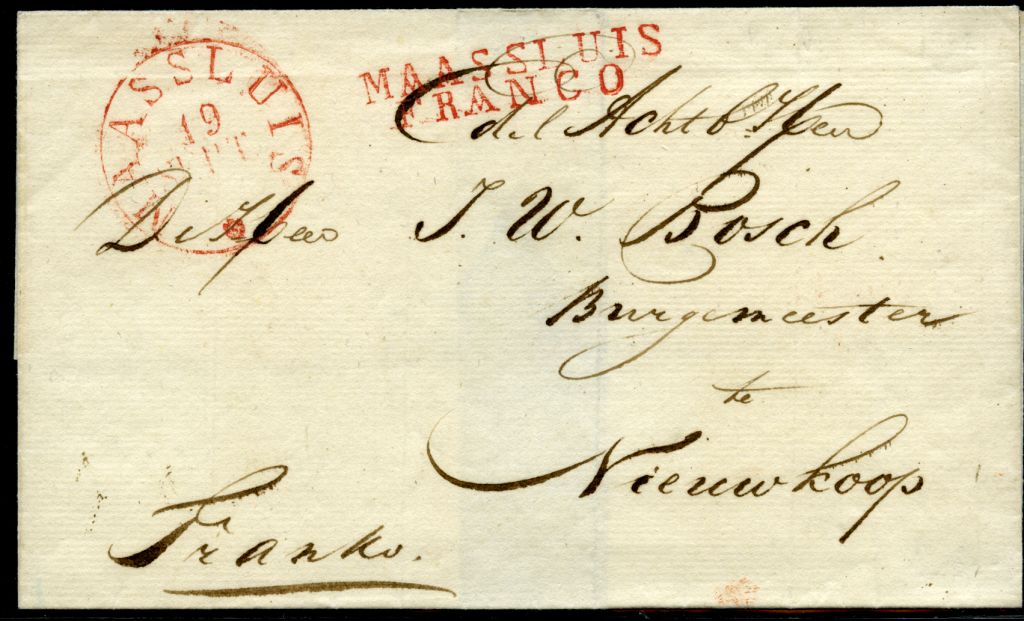 MAASSLUIS
19
MAASSLUIS
FRANCO
Heer
De Heer J. W. Bosch.
Burgemeester
te
Nieuwkoop
Franko.